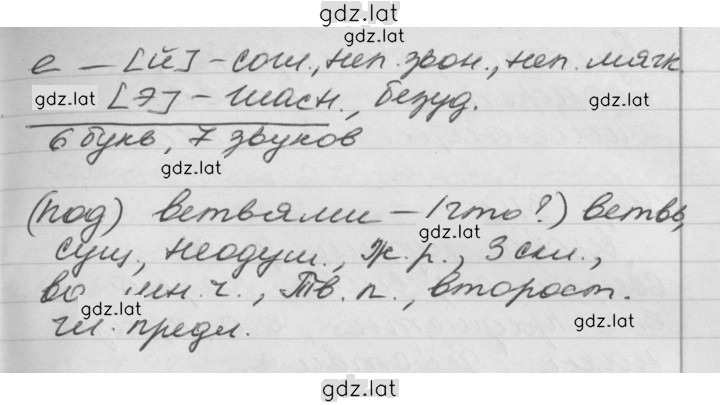 gdz.lat
gdz.lat
е – [й] - согл., неп. звон., неп. мягк.
gdz.lat [э] - гласн., безуд. gdz.lat
6 букв, 7 звуков
gdz.lat
(под) ветвями – (что?) ветвь,
gdz.lat
сущ., неодуш., ж. р., 3 скл.,
во мн. ч., Тв. п., второст.
gdz.lat
чл. предл. gdz.lat
gdz.lat